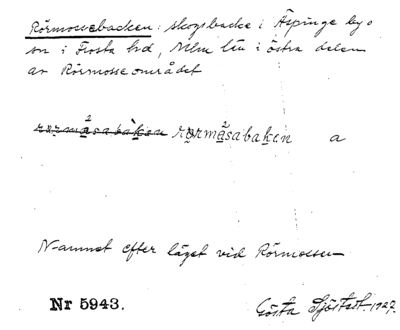 Rörmossebacken: skogsbacke i Äspinge by o
sn i Frosta hd, Mlm län i östra delen
av Rörmosseområdet
rormåsabaken a
Namnet efter läget vid Rörmossen
Nr 5943. Gösta Sjöstedt. 1927.